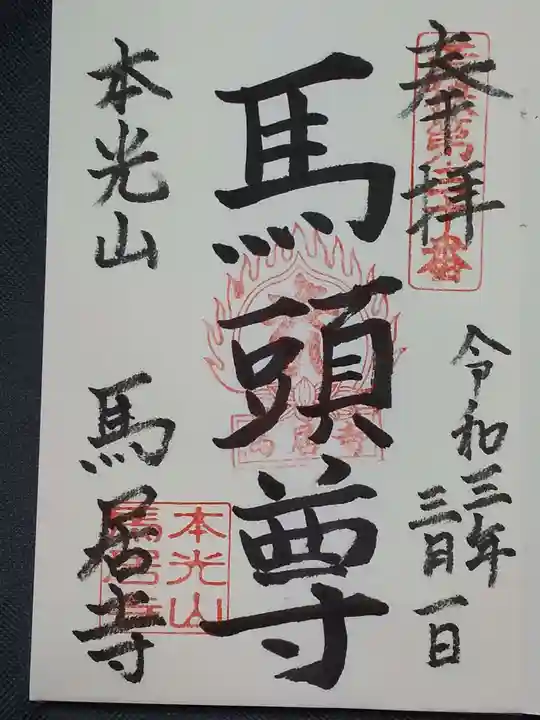 奉拝
令和三年
三月一日
馬頭尊
馬居寺
本光山
馬居寺
本光山
馬居寺